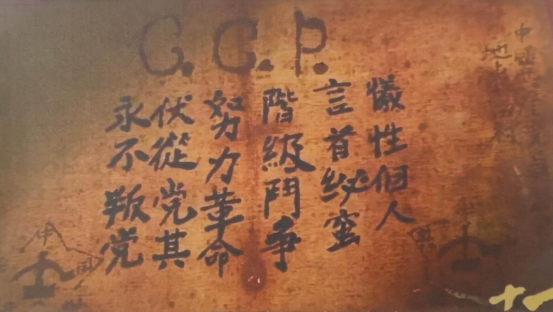 C.C.P.
犧性個人
言首秘蜜
階級鬥爭
努力革命
伏從党其
永不叛党
十一